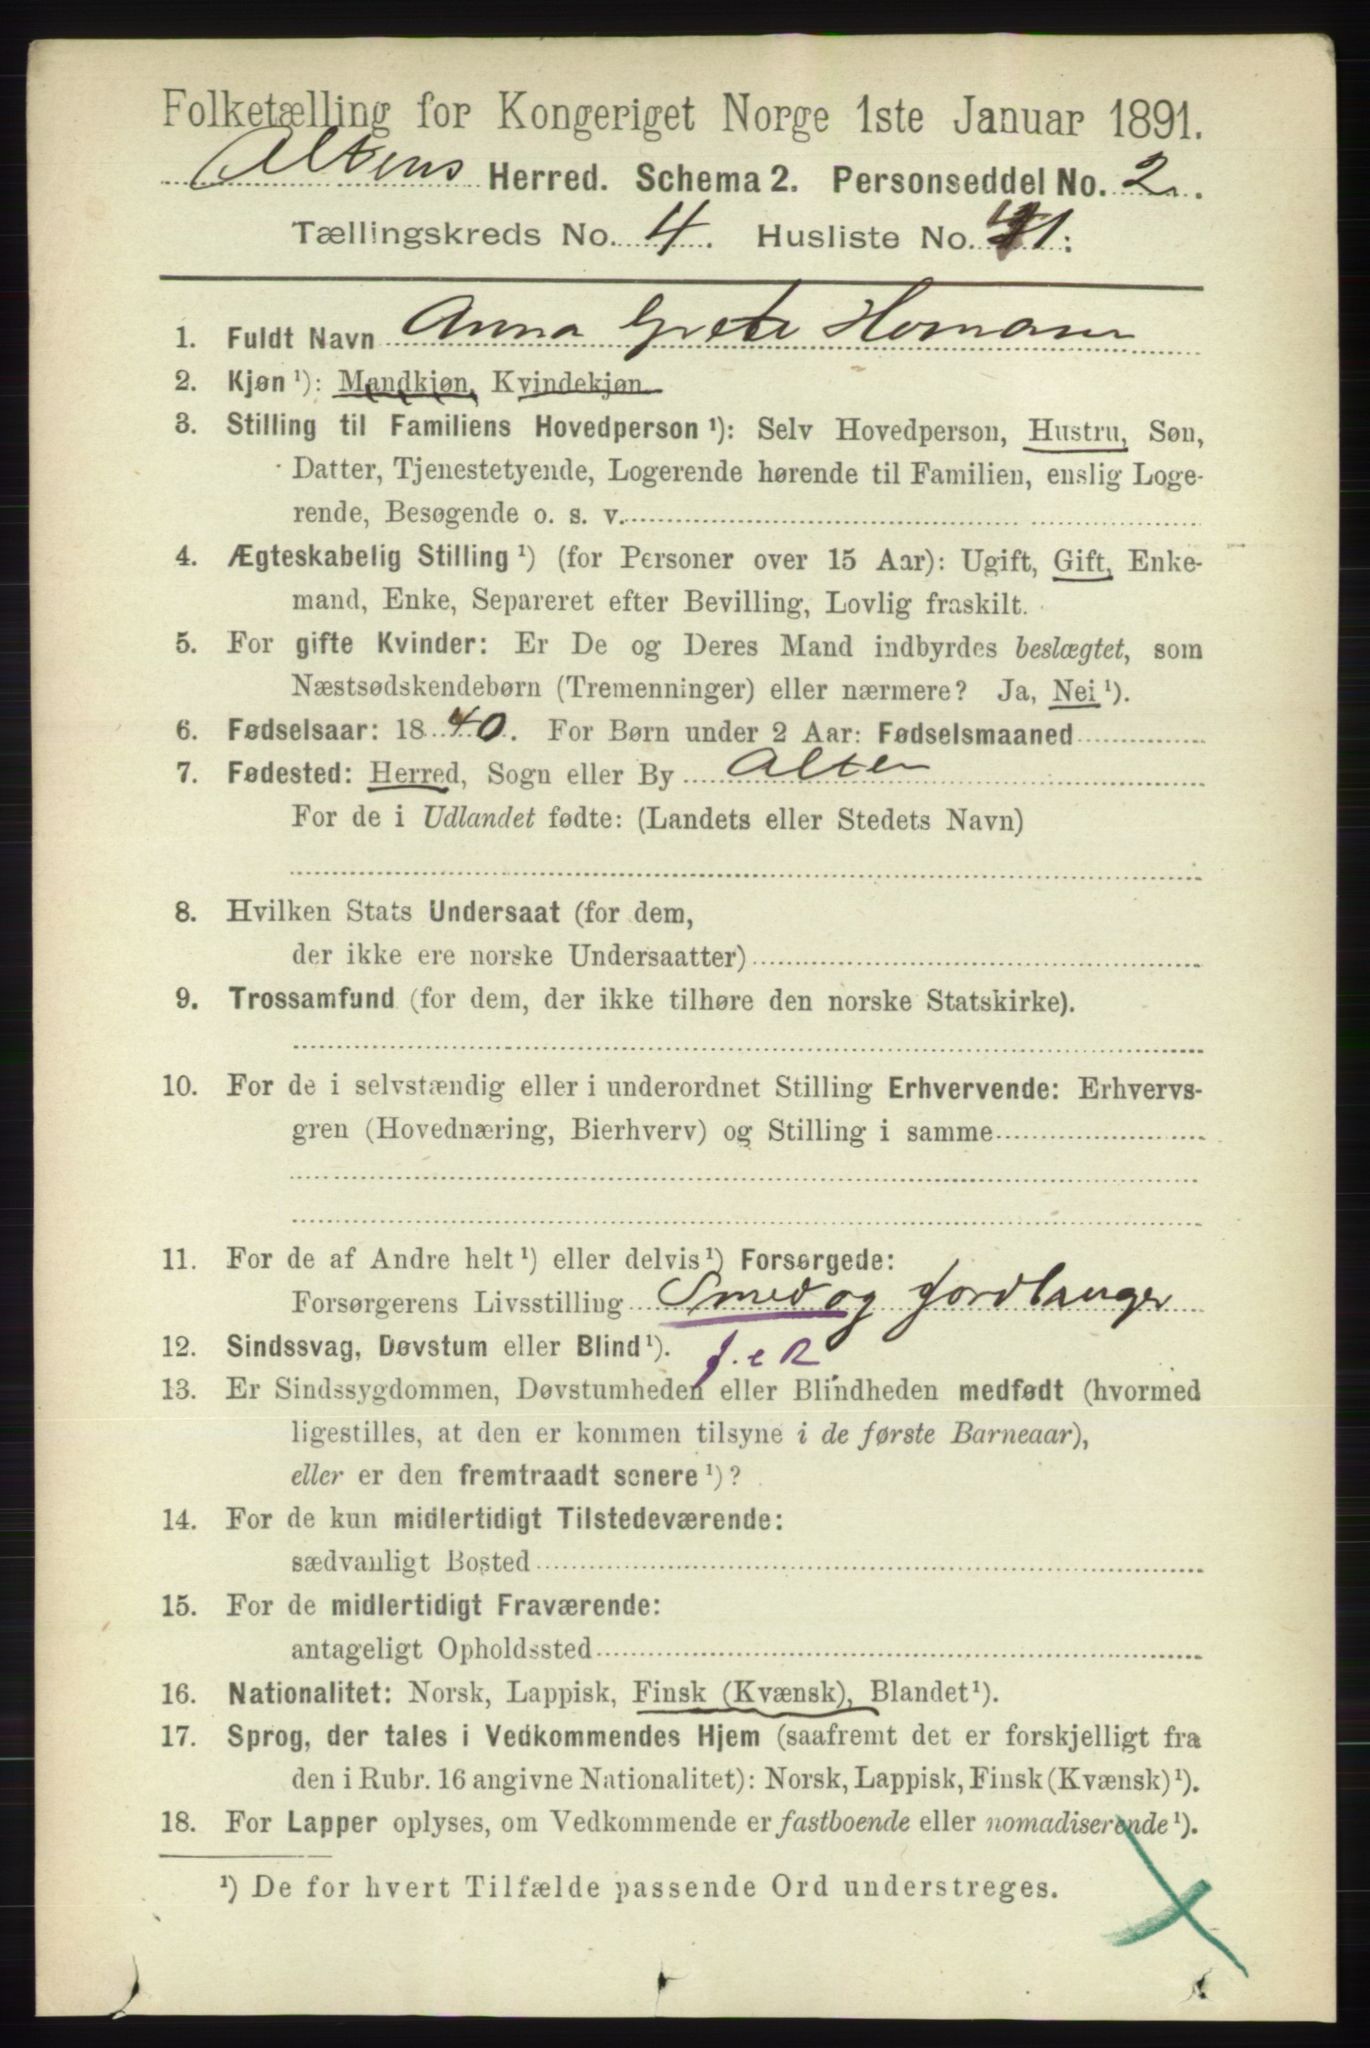 Folketælling for Kongeriget Norge 1ste Januar 1891.
Altens Herred. Schema 2. Personseddel No. 2.
Tællingskreds No. 4. Husliste No. 41.
1. Fuldt Navn Anna Grete Homann
2. Kjøn ¹): Mandkjøn, Kvindekjøn
3. Stilling til Familiens Hovedperson ¹): Selv Hovedperson, Hustru, Søn,
Datter, Tjenestetyende, Logerende hørende til Familien, enslig Loge-
rende, Besøgende o. s. v.
4. Ægteskabelig Stilling ¹) (for Personer over 15 Aar): Ugift, Gift, Enke-
mand, Enke, Separeret efter Bevilling, Lovlig fraskilt.
5. For gifte Kvinder: Er De og Deres Mand indbyrdes beslægtet, som
Næstsødskendebørn (Tremenninger) eller nærmere? Ja, Nei ¹).
6. Fødselsaar: 1840. For Børn under 2 Aar: Fødselsmaaned
7. Fødested: Herred, Sogn eller By Alten
For de i Udlandet fødte: (Landets eller Stedets Navn)
8. Hvilken Stats Undersaat (for dem,
der ikke ere norske Undersaatter)
9. Trossamfund (for dem, der ikke tilhøre den norske Statskirke).
10. For de i selvstændig eller i underordnet Stilling Erhvervende: Erhvervs-
gren (Hovednæring, Bierhverv) og Stilling i samme
11. For de af Andre helt ¹) eller delvis ¹) Forsørgede:
Forsørgerens Livsstilling Smed og Jordbruger
12. Sindssvag, Døvstum eller Blind ¹).
13. Er Sindssygdommen, Døvstumheden eller Blindheden medfødt (hvormed
ligestilles, at den er kommen tilsyne i de første Barneaar),
eller er den fremtraadt senere ¹)?
14. For de kun midlertidigt Tilstedeværende:
sædvanligt Bosted
15. For de midlertidigt Fraværende:
antageligt Opholdssted
16. Nationalitet: Norsk, Lappisk, Finsk (Kvænsk), Blandet ¹).
17. Sprog, der tales i Vedkommendes Hjem (saafremt det er forskjelligt fra
den i Rubr. 16 angivne Nationalitet): Norsk, Lappisk, Finsk (Kvænsk) ¹).
18. For Lapper oplyses, om Vedkommende er fastboende eller nomadiserende ¹).
¹) De for hvert Tilfælde passende Ord understreges.